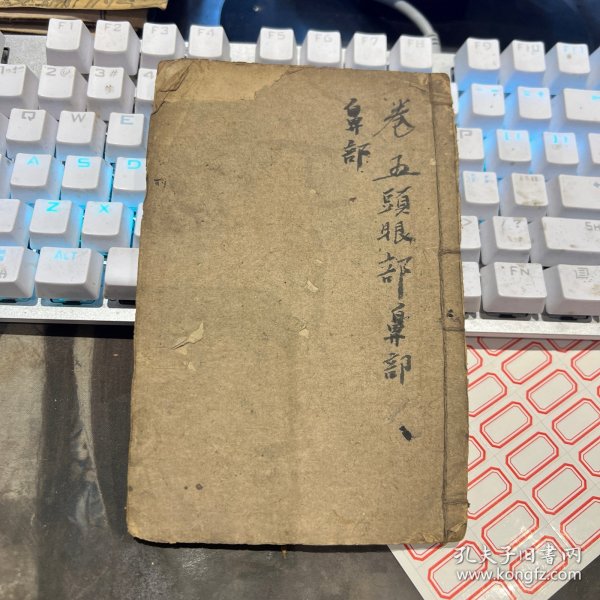 卷五頭眼部鼻部
鼻部
F1 F2 F3 F4 F5 F6 F7 F8 F9 F10
2@ 3#
Q W E
A S D
Z X
ALT
FN
孔夫子旧书网
www.kongfz.com